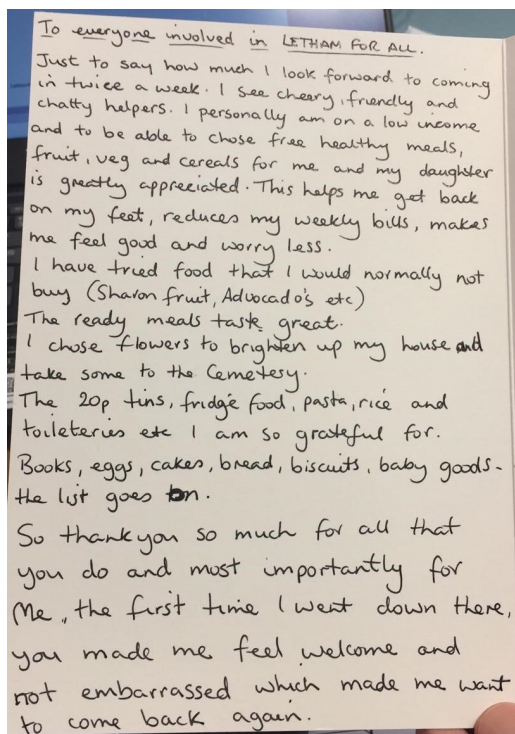 To everyone involved in LETHAM FOR ALL.
Just to say how much I look forward to coming
in twice a week. I see cheery, friendly and
chatty helpers. I personally am on a low income
and to be able to chose free healthy meals,
fruit, veg and cereals for me and my daughter
is greatly appreciated. This helps me get back
on my feet, reduces my weekly bills, makes
me feel good and worry less.
I have tried food that I would normally not
buy (Sharon fruit, Advocado's etc)
The ready meals taste great.
I chose flowers to brighten up my house and
take some to the Cemetery.
The 20p tins, fridge food, pasta, rice and
toileteries etc I am so grateful for.
Books, eggs, cakes, bread, biscuits, baby goods -
the list goes on.
So thankyou so much for all that
you do and most importantly for
Me, the first time I went down there,
you made me feel welcome and
not embarrassed which made me want
to come back again.